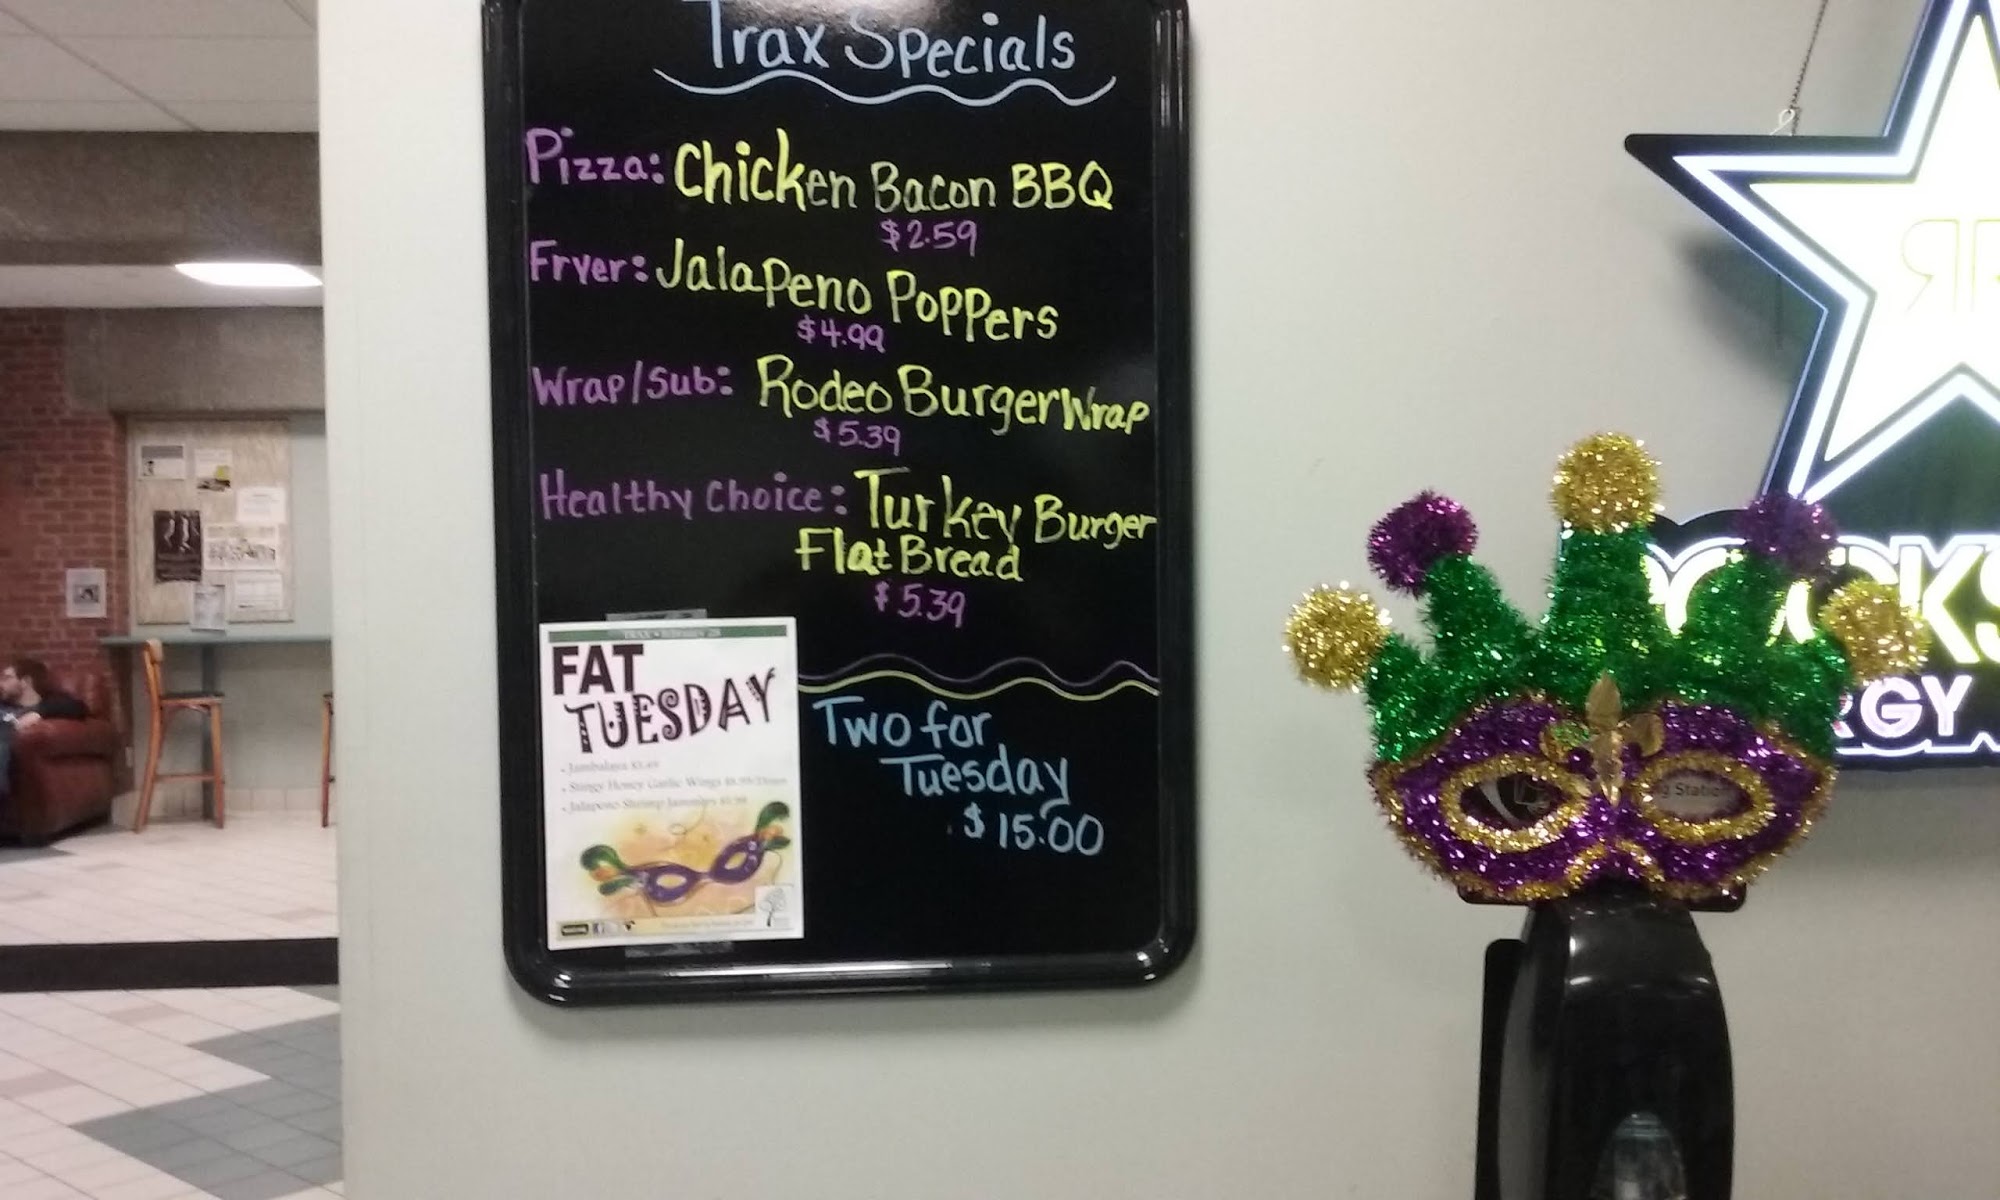 Trax Specials
Pizza: Chicken Bacon BBQ
$2.59
Fryer: Jalapeno Poppers
$4.99
Wrap/Sub: Rodeo Burger Wrap
$5.39
Healthy Choice: Turkey Burger
Flat Bread
$5.39
Two for
Tuesday
$15.00
TRAX • February 28
FAT
TUESDAY
• Jambalaya
• Stingy Honey Garlic Wings
• Jalapeno Shrimp Jammers
g Station
RGY